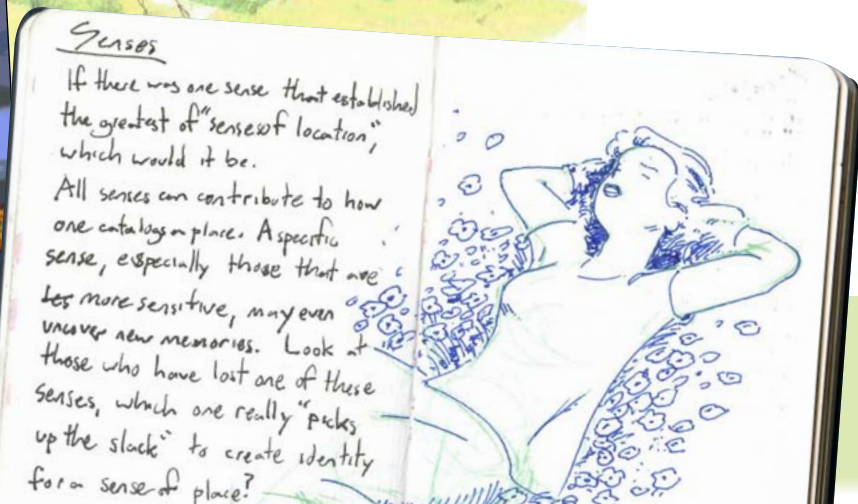 Senses
If there was one sense that established
the greatest of "senses of location",
which would it be.
All senses can contribute to how
one catalogs a place. A specific
sense, especially those that are
more sensitive, may even
uncover new memories. Look at
those who have lost one of these
senses, which one really "picks
up the slack" to create identity
for a sense of place?